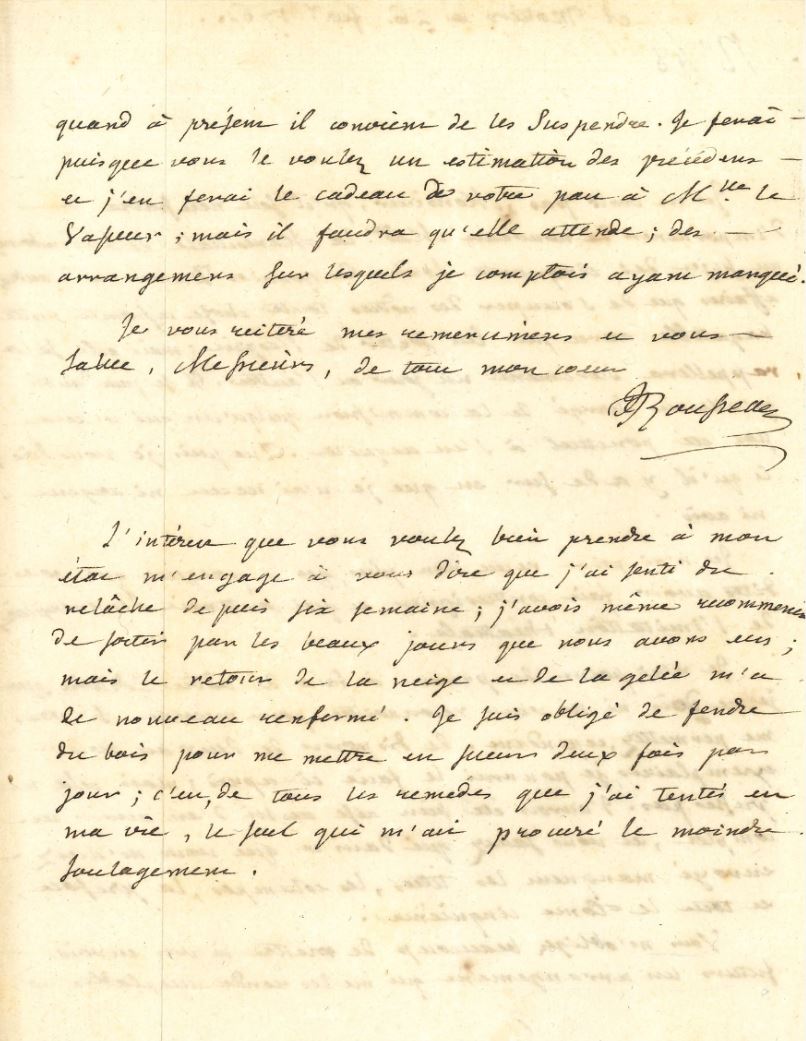 quand à présent il convient de les suspendre. Je ferai –
puisque vous le voulez un estimation des précédens –
et j'en ferai le cadeau de votre part à Mlle le
Vasseur ; mais il faudra qu'elle attende ; des –
arrangemens sur lesquels je comptois ayant manqué.
Je vous reitére mes remercimens et vous –
salue, Messieurs, de tout mon coeur
JJRousseau
L'intéret que vous voulez bien prendre à mon
état m'engage à vous dire que j'ai senti du
relâche depuis six semaine ; j'avois même recommencé
de sortir par les beaux jours que nous avons eus ;
mais le retour de la neige et de la gelée m'a
de nouveau renfermé. Je suis obligé de fendre
du bois pour me mettre en sueur deux fois par
jour ; c'est, de tous les remédes que j'ai tentés en
ma vie, le seul qui m'ait procuré le moindre
soulagement.